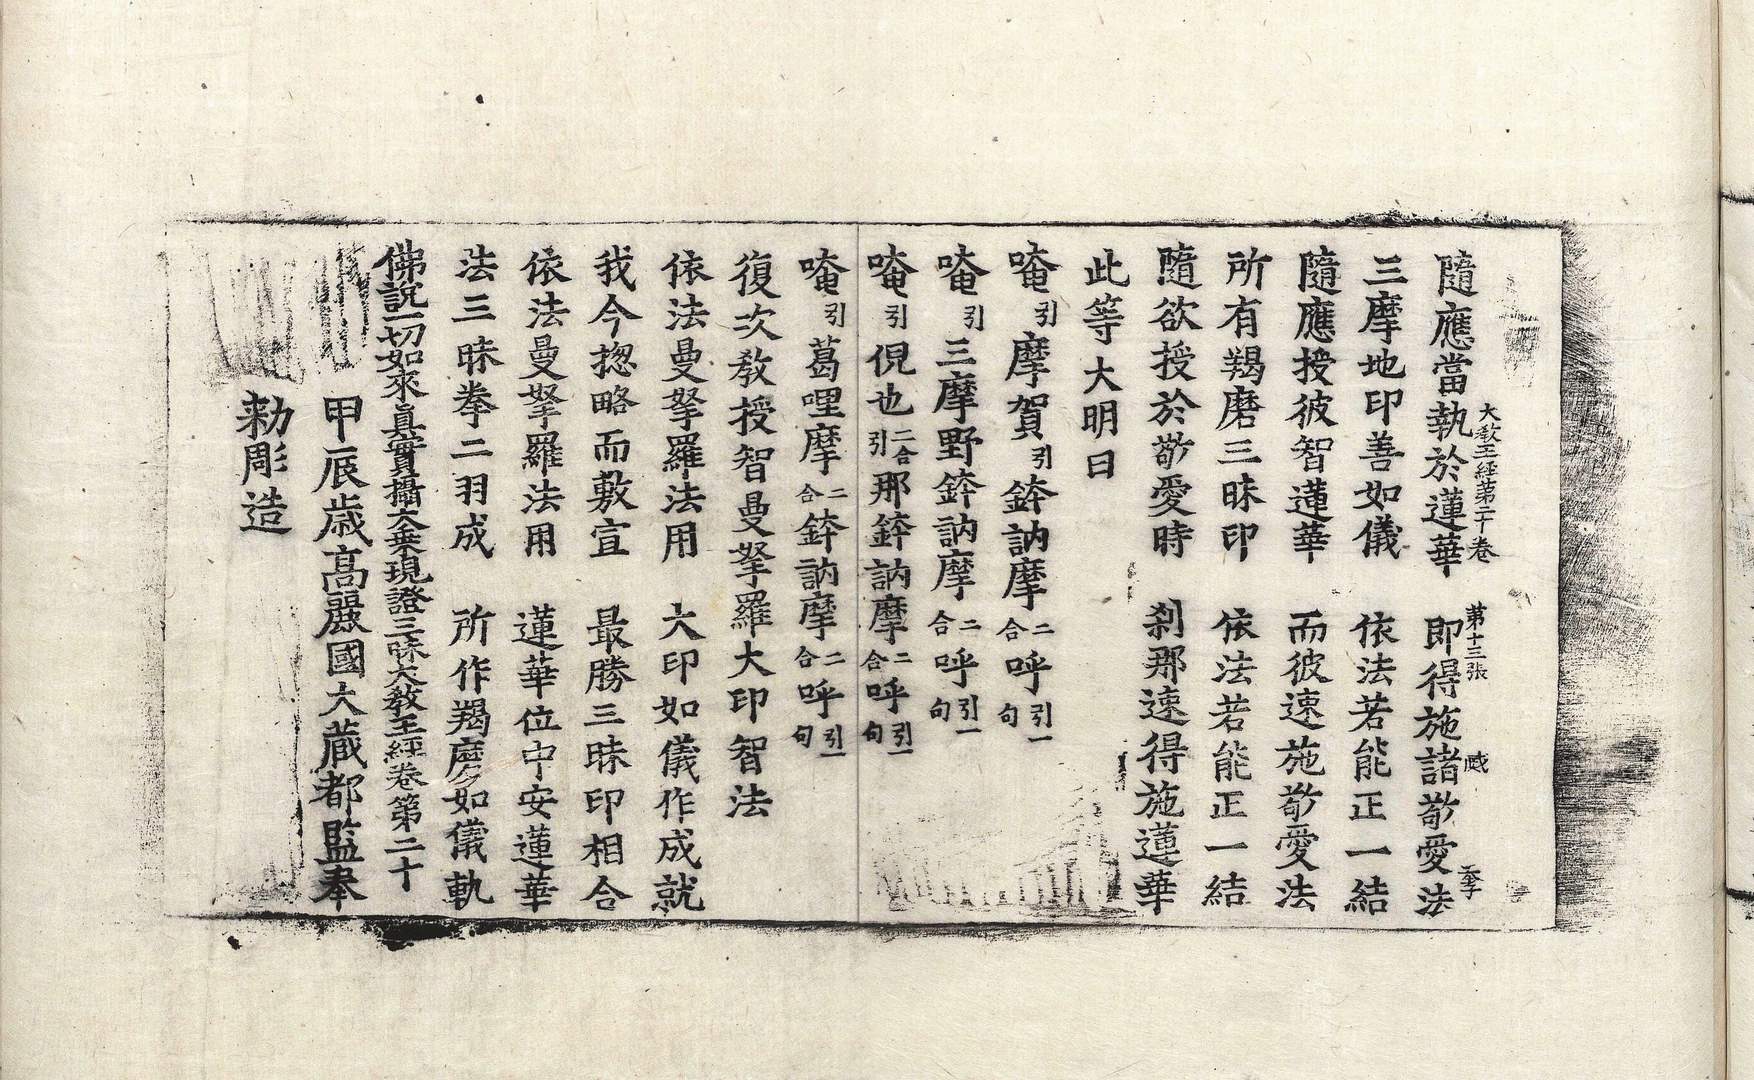 大教王經第二十卷　第十三張　咸　泰子
隨應當執於蓮華　即得施諸敬愛法
三摩地印善如儀　依法若能正一結
隨應授彼智蓮華　而彼速施敬愛法
所有羯磨三昧印　依法若能正一結
隨欲授於敬愛時　剎那速得施蓮華
此等大明曰
唵引摩賀引鉢訥摩二合呼引一句
唵引三摩野鉢訥摩二合呼引一句
唵引倪也二合引那鉢訥摩二合呼引一句
唵引葛哩摩二合鉢訥摩二合呼引一句
復次教授智曼拏羅大印智法
依法曼拏羅法用　大印如儀作成就
我今揔略而敷宣　最勝三昧印相合
依法曼拏羅法用　蓮華位中安蓮華
法三昧拳二羽成　所作羯磨如儀軌
佛說一切如來真實攝大乗現證三昧大教王經卷第二十
甲辰歲高麗國大藏都監奉
勅彫造